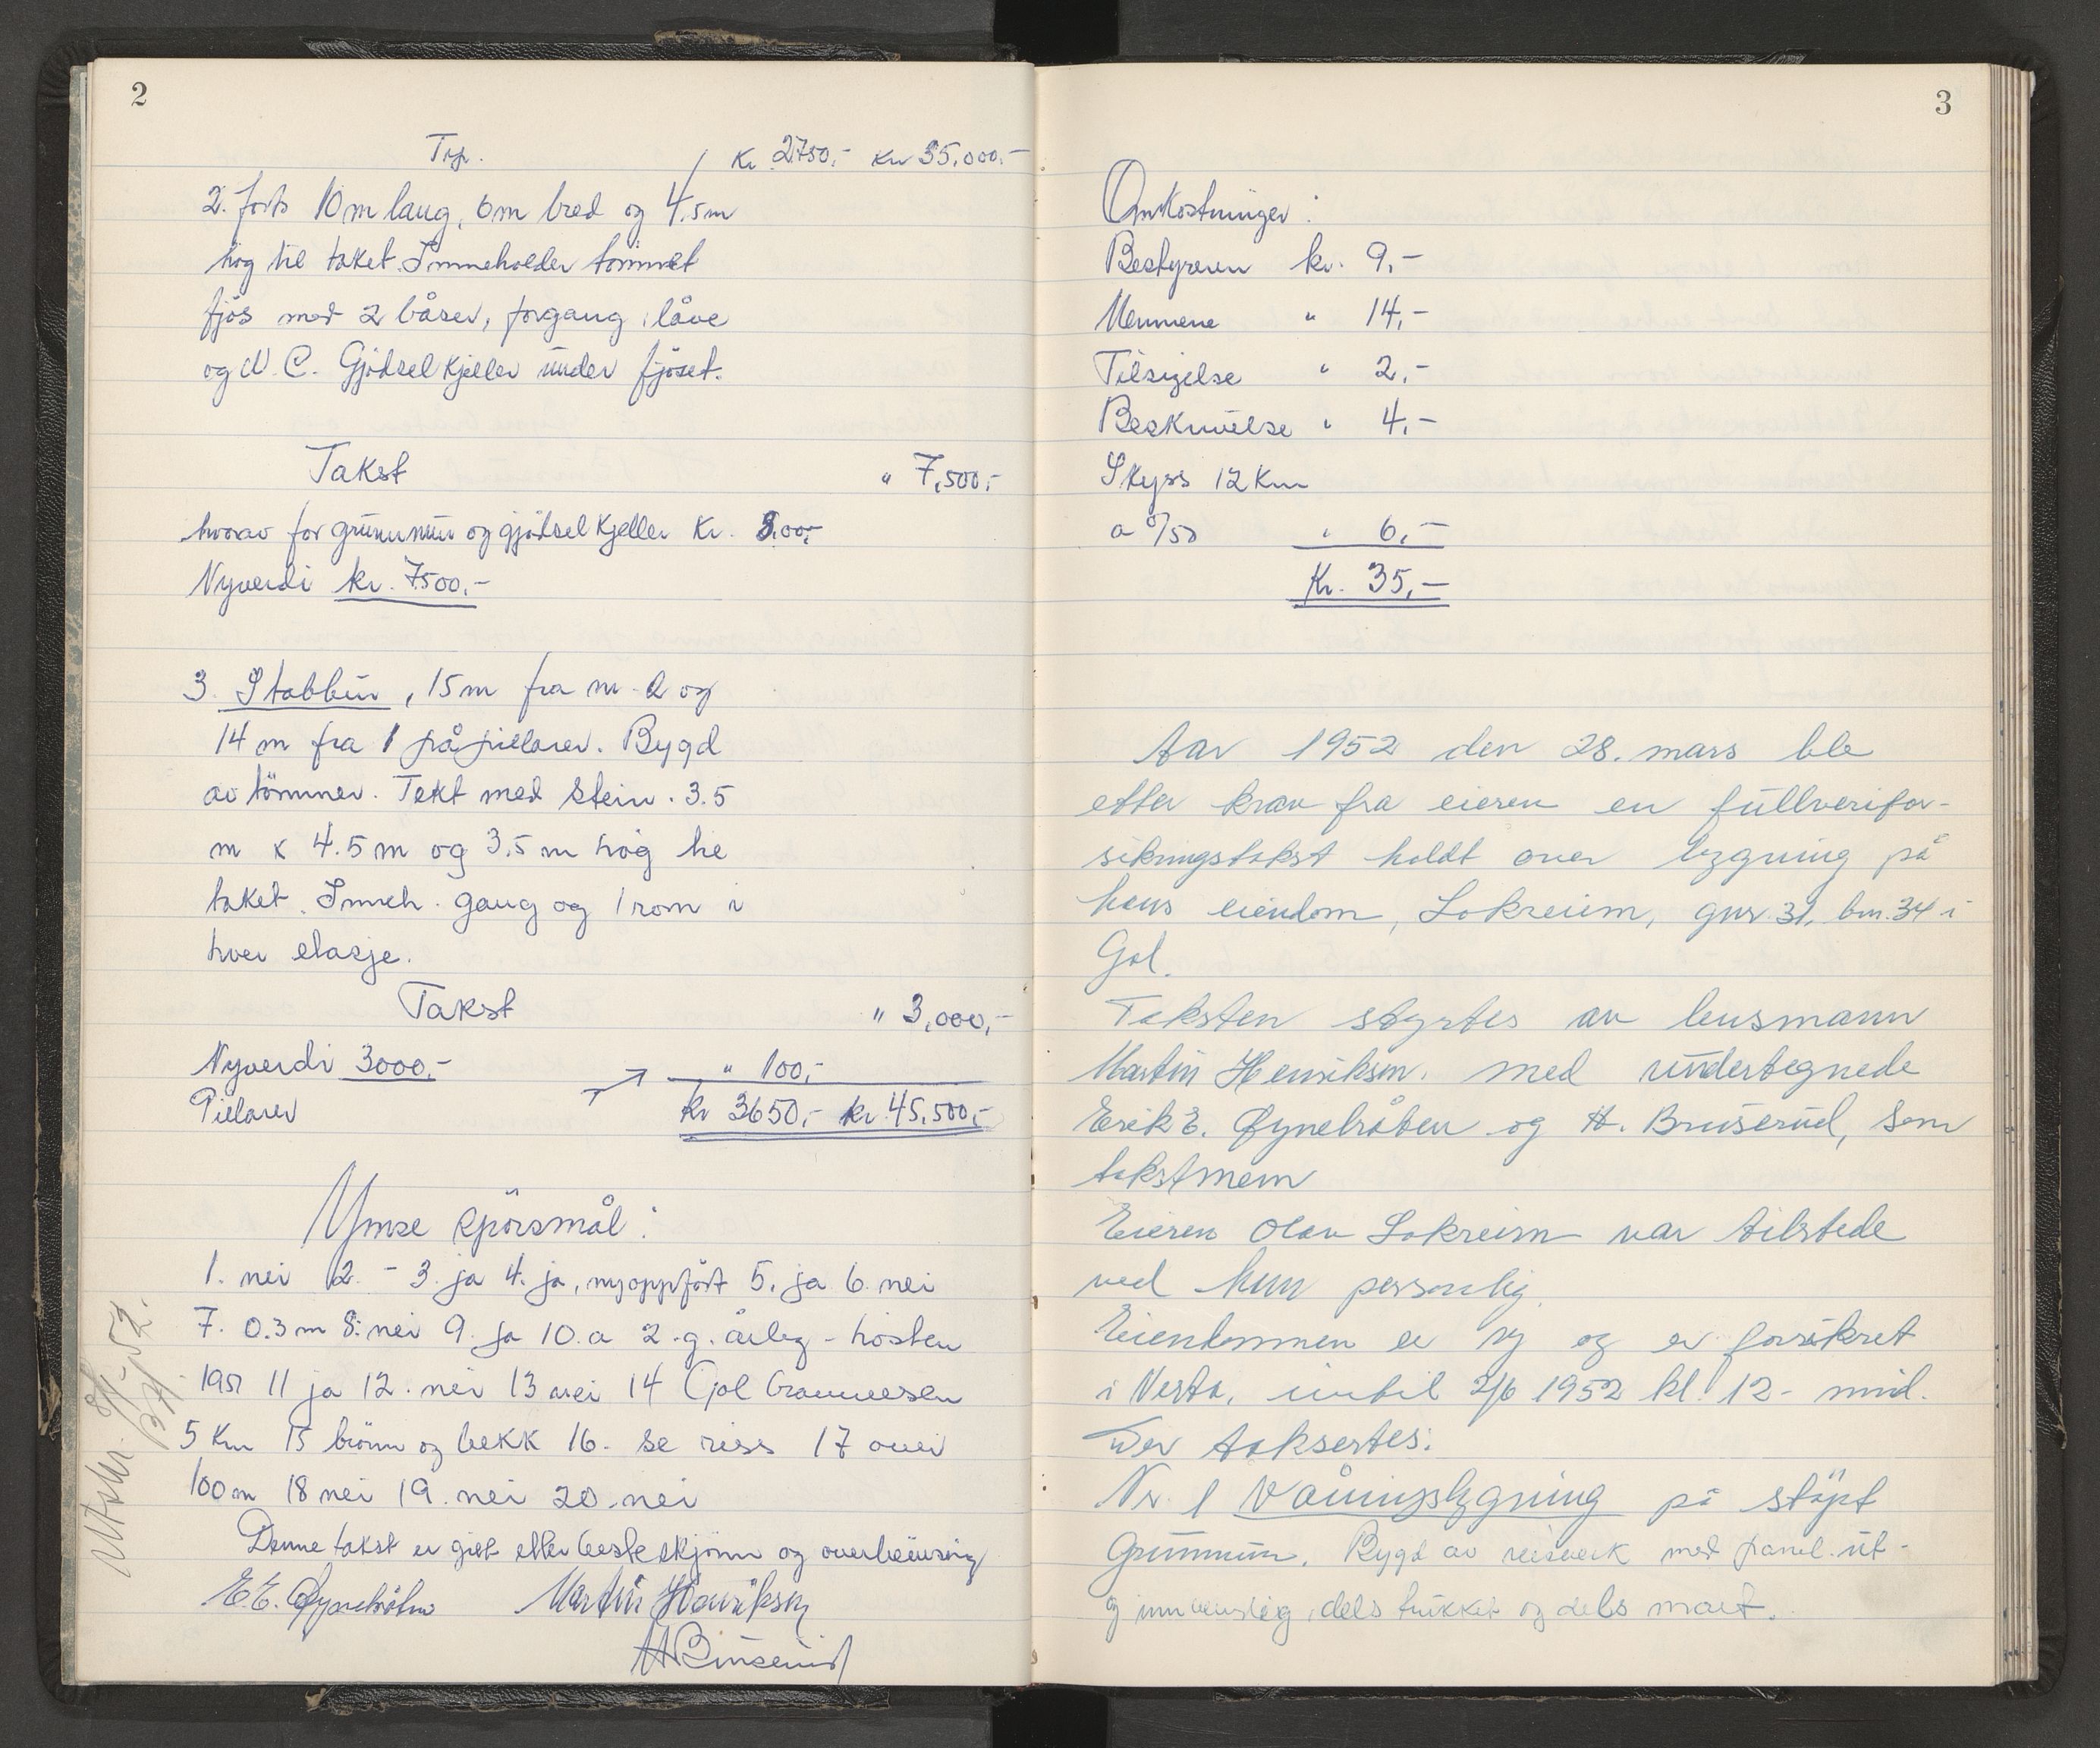 2
Trp. kr 2750,- kr 35.000,-
2. forts 10 m lang, 6 m bred og 4,5 m
høg til taket. Inneholder tømmret
fjøs med 2 båser, forgang, låve
og W.C. Gjødselkjeller under fjøset.
Takst " 7,500,-
hvorav for grunnmur og gjødselkjeller kr. 800,-
Nyverdi kr. 7500,-
3. Stabbur, 15 m fra nr. 2 og
14 m fra 1 på pielarer. Bygd
av tømmer. Tekt med stein. 3.5
m x 4.5 m og 3.5 m høg te
taket. Inneh. gang og 1 rom i
hver etasje.
Takst " 3,000,-
Nyverdi 3000,- " 100,-
Pielarer kr 3650,- kr. 45,500,-
Ymse spørsmål:
1. nei 2. - 3. ja 4. ja, nyoppført 5. ja 6. nei
7. 0.3 m 8. nei 9. ja 10. a 2. g. årleg - høsten
1951 11 ja 12. nei 13 nei 14 Gol
5 km 15 brønn og bekk 16. se riss 17 over
100 m 18 nei 19. nei 20. nei
Denne takst er git etter beste skjønn og overbevisning
E.E. Øynebråten Martin Henriksen
H Bruserud
Utskr.
3
Omkostninger:
Bestyreren kr. 9,-
Mennene " 14,-
Tilsigelse " 2,-
Beskrivelse " 4,-
Skyss 12 km
a 0/50 " 6,-
Kr. 35,-
Aar 1952 den 28. mars ble
etter krav fra eieren en fullverifor-
sikringstakst holdt over bygning på
hans eiendom, Lokreim, gnr. 31, bnr. 34 i
Gol.
Taksten styrtes av lensmann
Martin Henriksen. med undertegnede
Erik E. Øynebråten og H. Bruserud, som
takstmenn
Eieren Olav Lokreim var tilstede
ved hun personlig.
Eiendommen er ny og er forsikret
i Vesta, intil 2/6 1952 kl. 12 - mid.
Der taksertes:
Nr. 1 Våningsbygning på støpt
Grunnmur. Bygd av reisverk med panel ut-
og innvendig, dels trukket og dels malt.